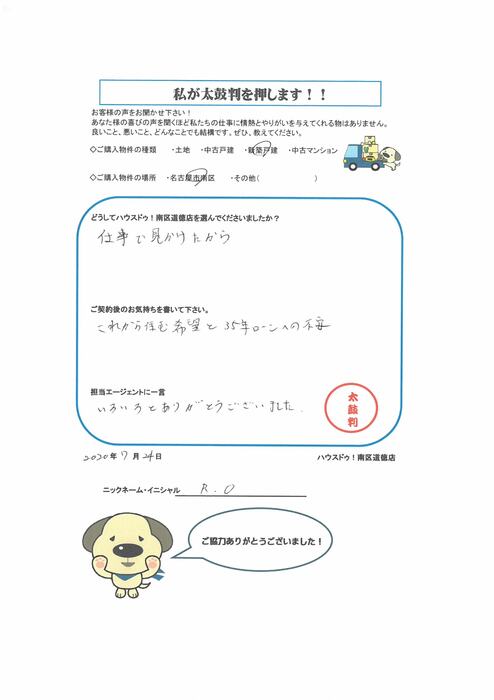 私が太鼓判を押します！！
お客様の声をお聞かせ下さい！
あなた様の喜びの声を聞くほど私たちの仕事に情熱とやりがいを与えてくれる物はありません。
良いこと、悪いこと、どんなことでも結構です。ぜひ、教えてください。
◇ご購入物件の種類　・土地　・中古戸建　・新築戸建　・中古マンション
◇ご購入物件の場所　・名古屋市南区　・その他(　　　　　　)
どうしてハウスドゥ！南区道徳店を選んでくださいましたか？
仕事で見かけたから
ご契約後のお気持ちを書いて下さい。
これから住む希望と35年ローンへの不安
担当エージェントに一言
いろいろとありがとうございました.
太鼓判
2020年7月24日　ハウスドゥ！南区道徳店
ニックネーム・イニシャル　R.O
ご協力ありがとうございました！